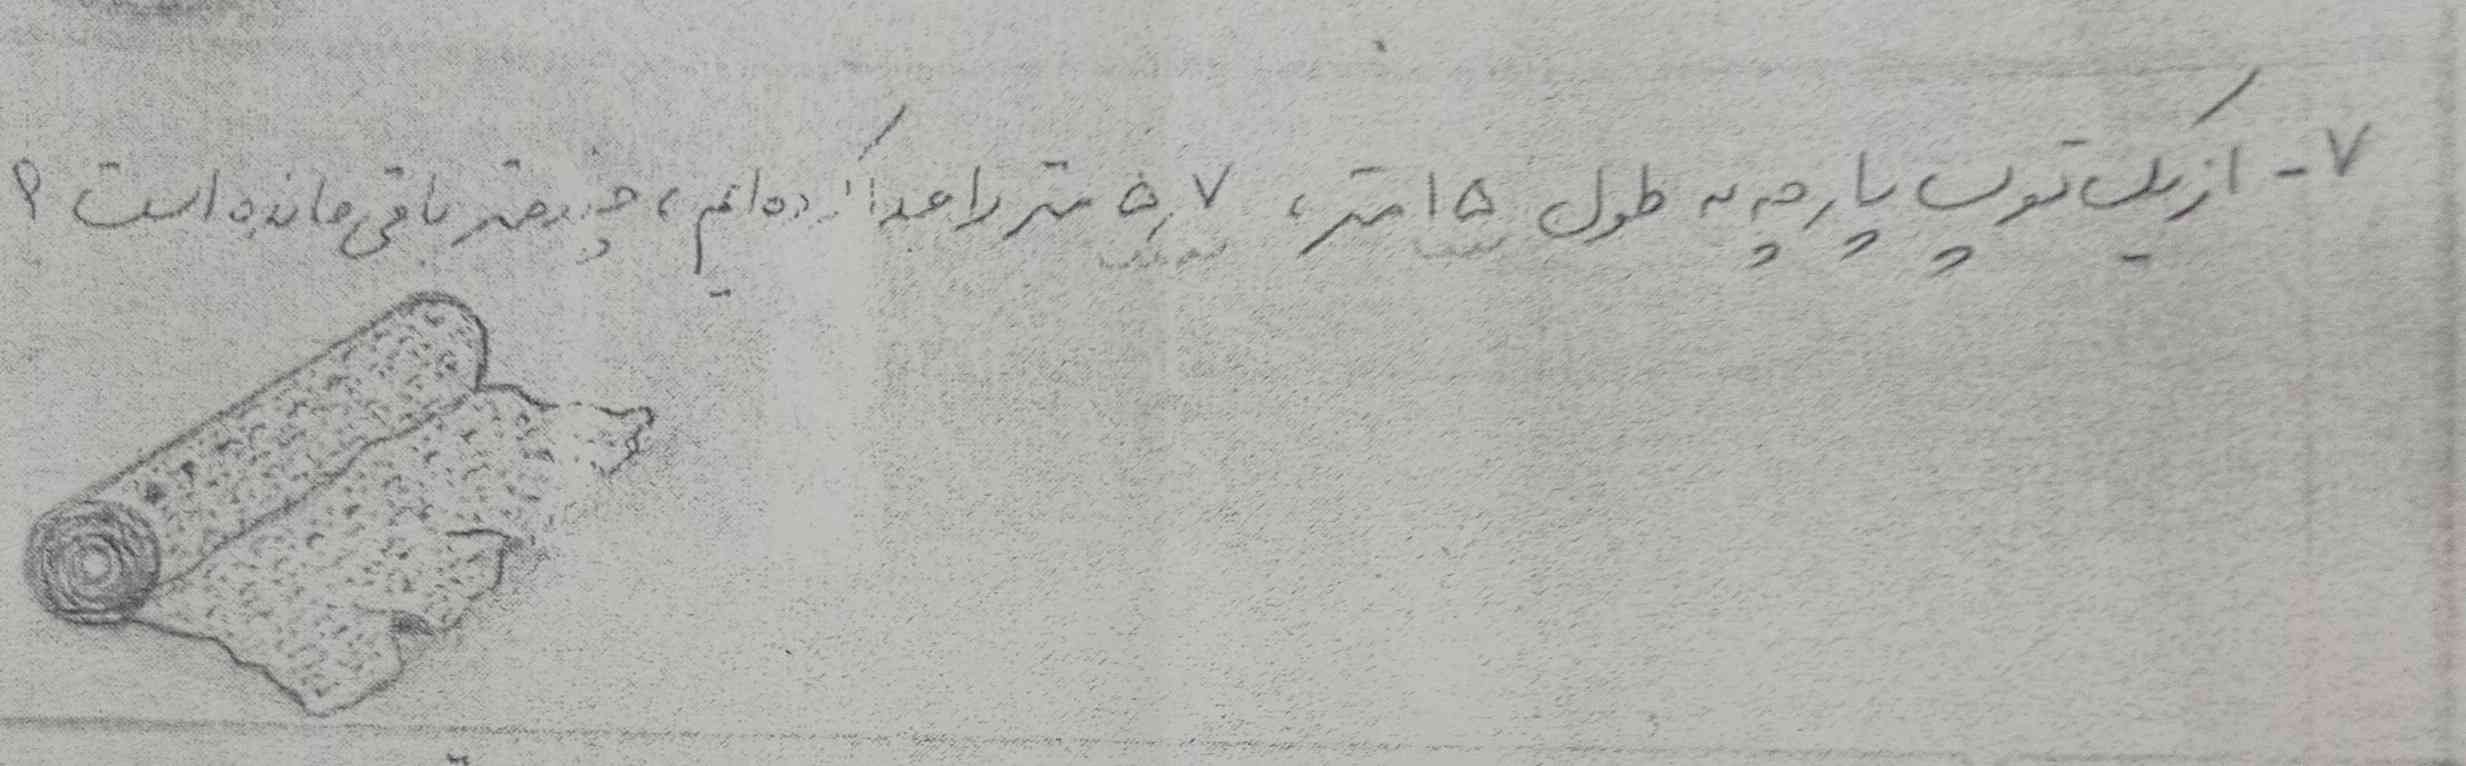 ۷- از یک توپ پارچه به طول ۱۵ متر، ۵٫۷ متر را جدا کرده‌ایم، چند متر باقی مانده است؟